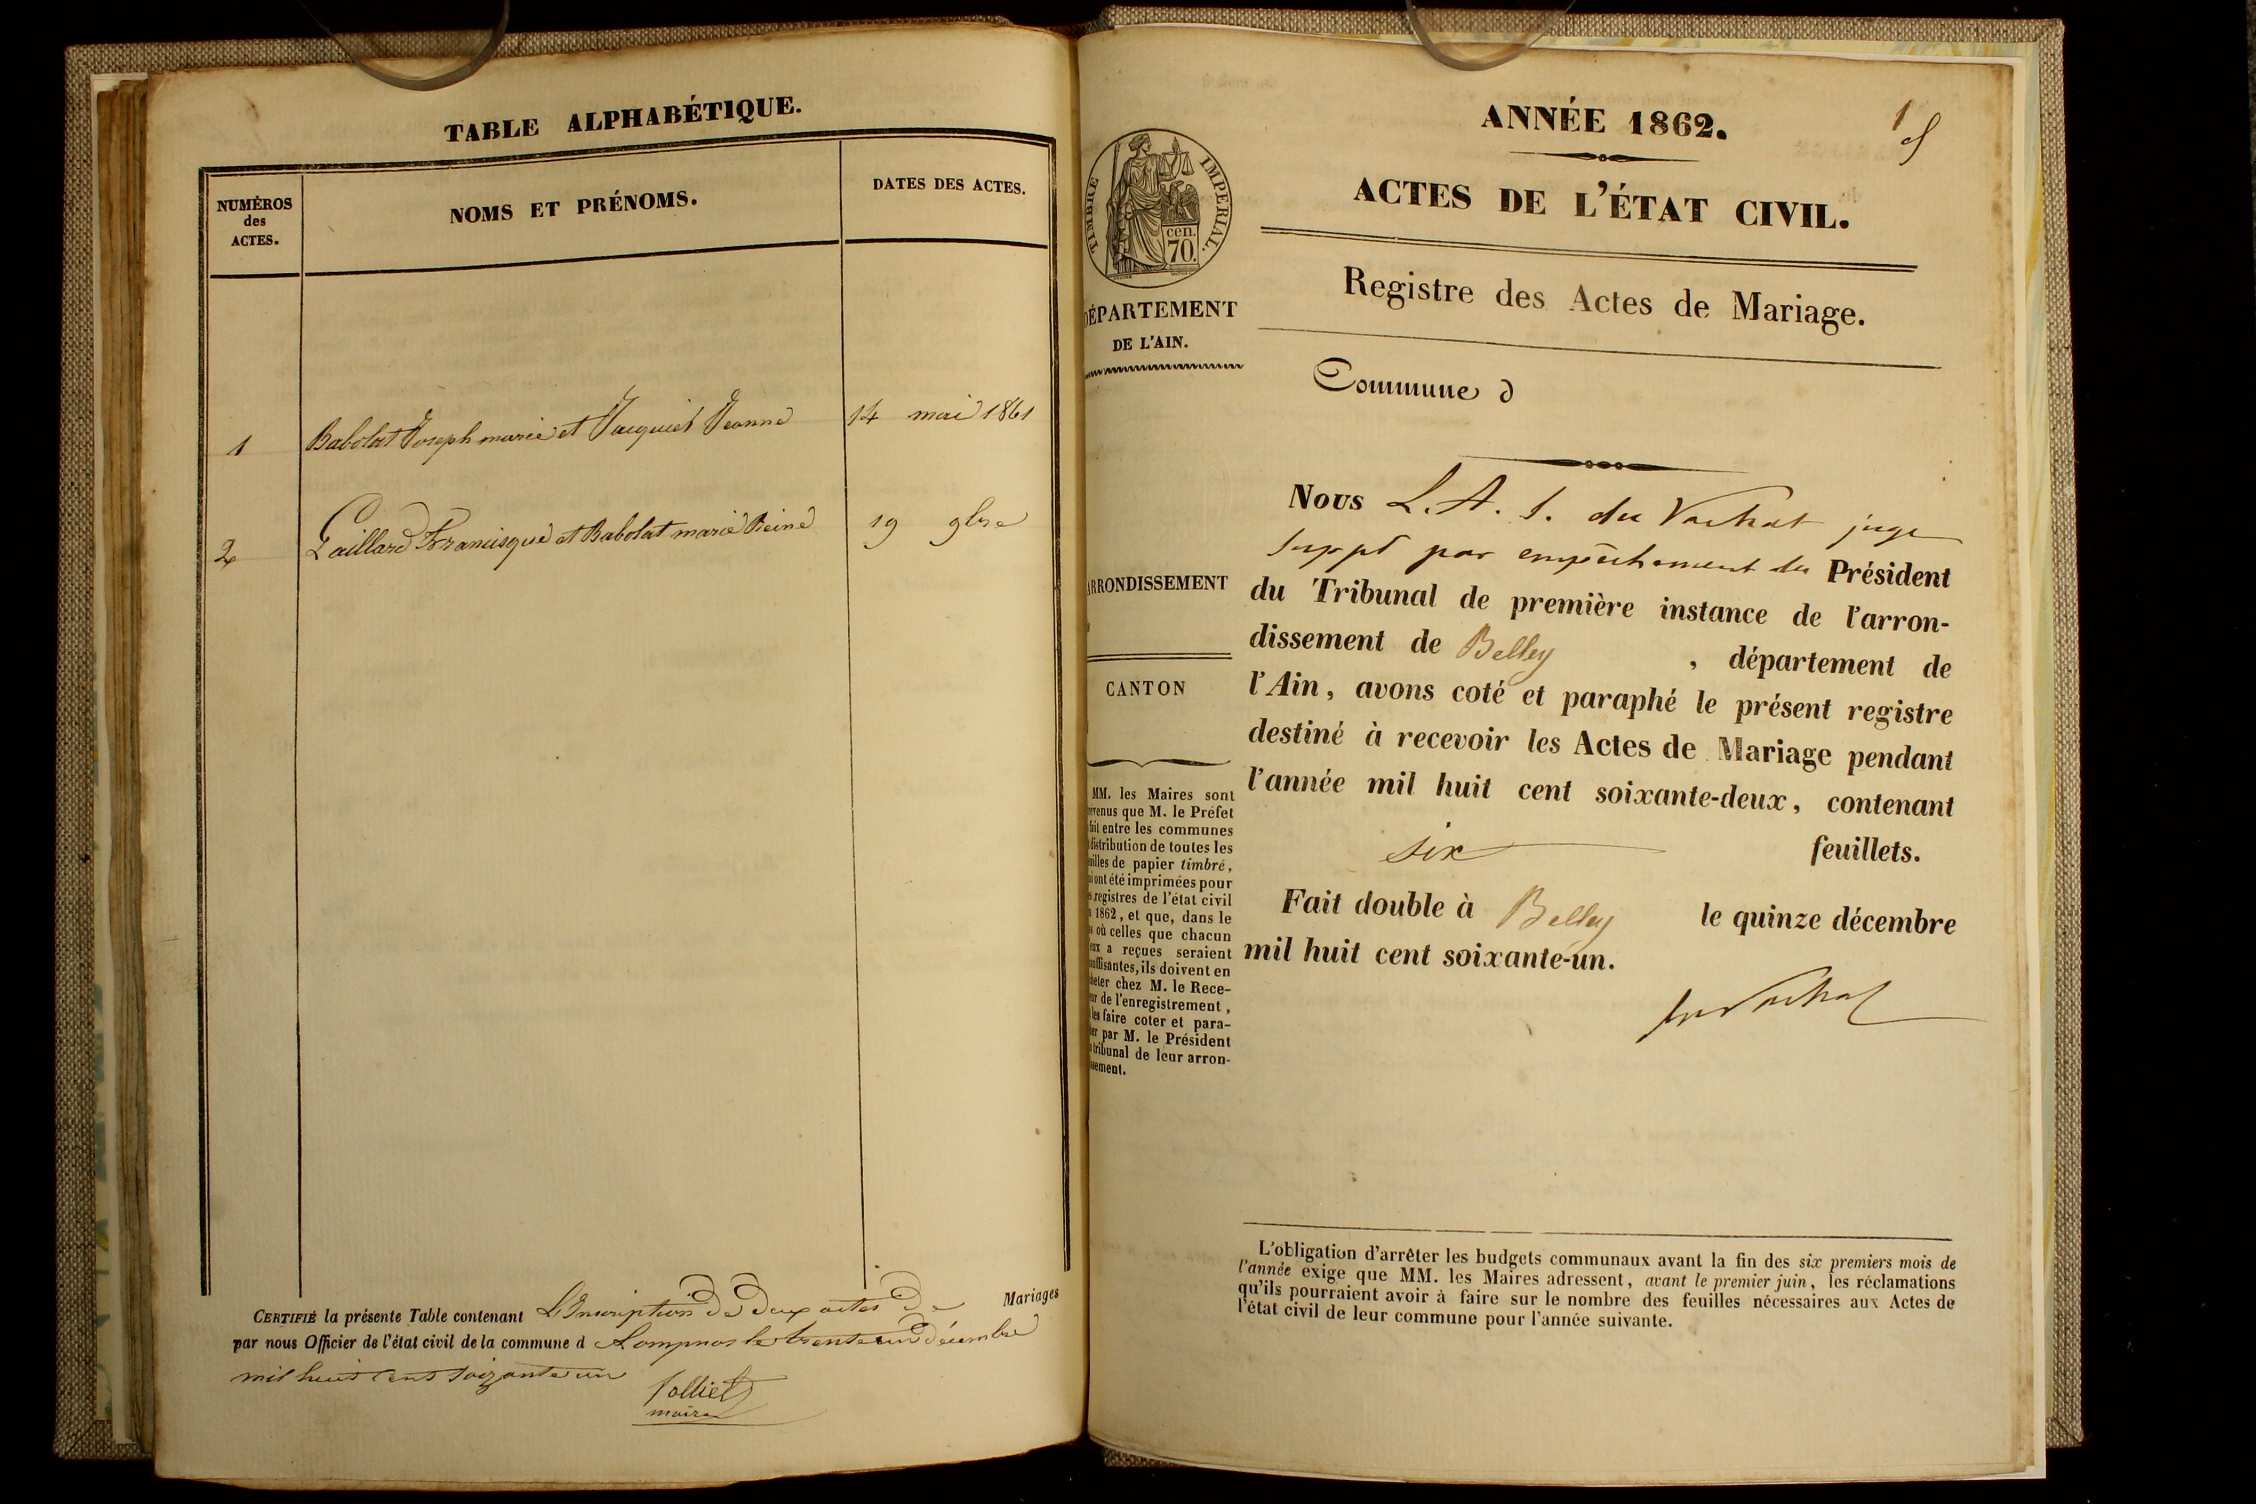 TABLE ALPHABÉTIQUE.
NUMÉROS
des
ACTES.
NOMS ET PRÉNOMS.
DATES DES ACTES.
1 Babolat Joseph marie et Jacquiet Jeanne 14 mai 1861
2 Gaillard Francisque et Babolat marie Reine 19 9bre
CERTIFIÉ la présente Table contenant L'Inscription de deux actes de Mariages
par nous Officier de l'état civil de la commune d Lompnas le trente un décembre
mil huit cent soixante un
Jolliet
maire
ANNÉE 1862.
1
ACTES DE L'ÉTAT CIVIL.
Registre des Actes de Mariage.
TIMBRE IMPERIAL.
cen.
70.
DÉPARTEMENT
DE L'AIN.
Commune d
ARRONDISSEMENT
CANTON
MM. les Maires sont
venus que M. le Préfet
fait entre les communes
distribution de toutes les
uilles de papier timbré,
ui ont été imprimées pour
es registres de l'état civil
1862, et que, dans le
s où celles que chacun
eux a reçues seraient
suffisantes, ils doivent en
heter chez M. le Rece-
ur de l'enregistrement,
les faire coter et para-
er par M. le Président
tribunal de leur arron-
sement.
Nous L. A. J. du Vachat juge
suppt par empêchement du Président
du Tribunal de première instance de l'arron-
dissement de Belley , département de
l'Ain, avons coté et paraphé le présent registre
destiné à recevoir les Actes de Mariage pendant
l'année mil huit cent soixante-deux, contenant
six feuillets.
Fait double à Belley le quinze décembre
mil huit cent soixante-un.
du Vachat
L'obligation d'arrêter les budgets communaux avant la fin des six premiers mois de
l'année exige que MM. les Maires adressent, avant le premier juin, les réclamations
qu'ils pourraient avoir à faire sur le nombre des feuilles nécessaires aux Actes de
l'état civil de leur commune pour l'année suivante.